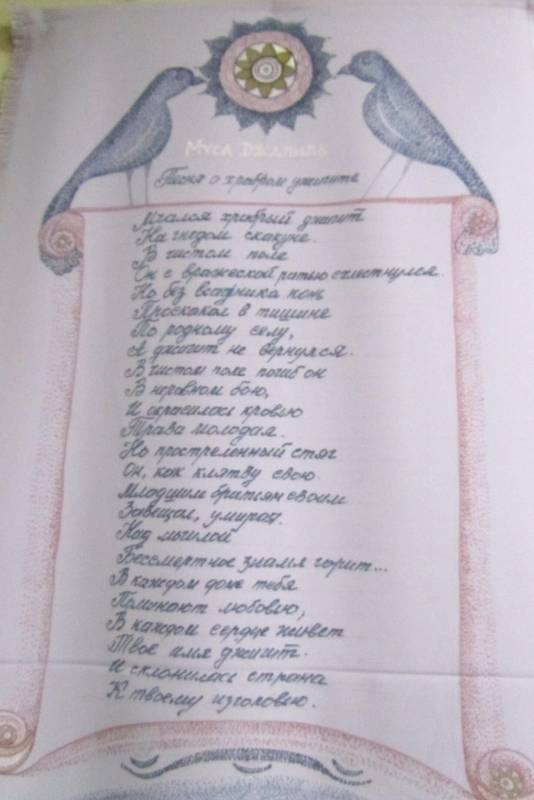 Муса Джалиль
Песня о храбром джигите
Мчался храбрый джигит
На гнедом скакуне.
В чистом поле
Он с вражеской ратью схлестнулся.
Но без всадника конь
Проскакал в тишине
По родному селу,
А джигит не вернулся.
В чистом поле погиб он
В неровном бою,
И окрасилась кровью
Трава молодая.
Но простреленный стяг
Он, как клятву свою.
Младшим братьям своим
Завещал, умирая.
Над могилой
Бессмертное знамя горит...
В каждом доме тебя
Поминают любовью,
В каждом сердце живет
Твое имя джигит.
И склонилась страна
К твоему изголовью.